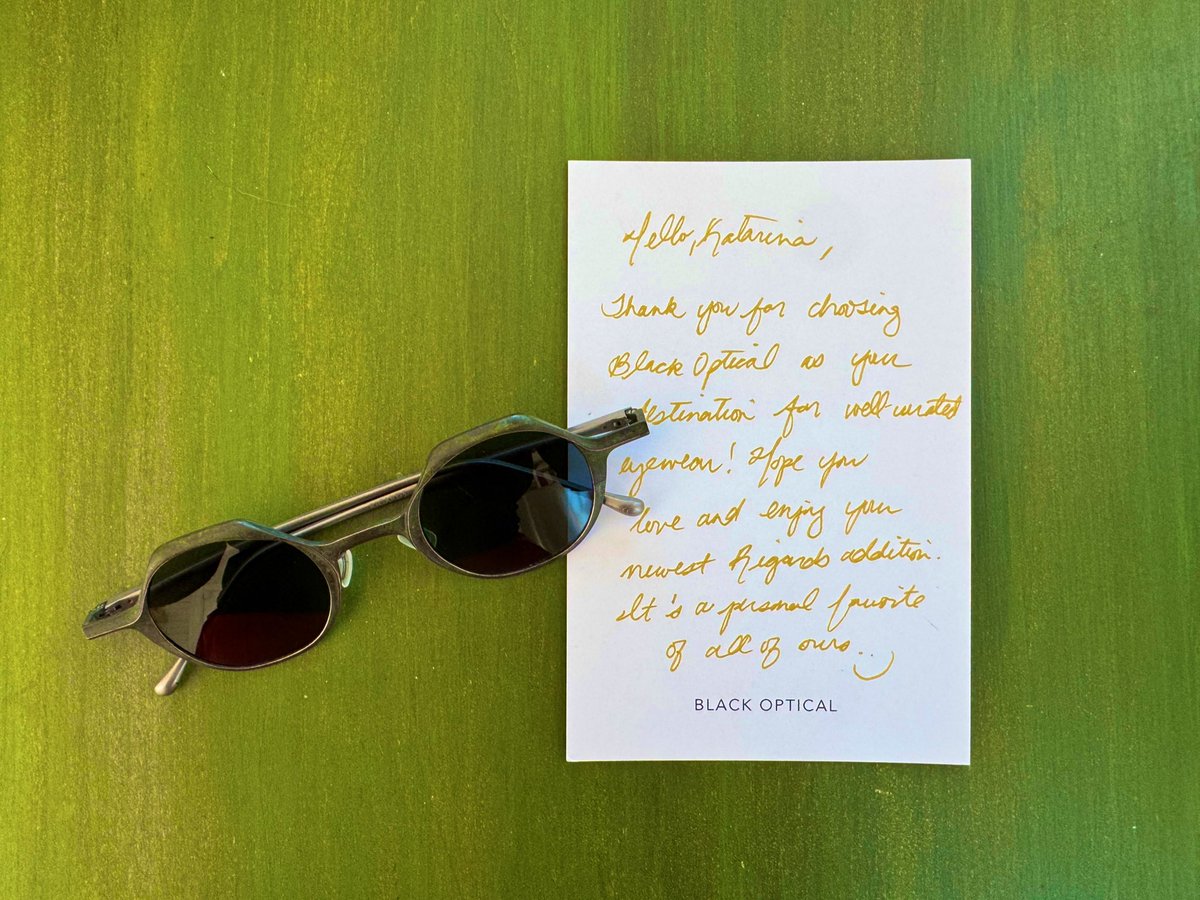 Hello, Katarina,
Thank you for choosing
Black Optical as your
destination for well-curated
eyewear! Hope you
love and enjoy your
newest Rigards addition.
It's a personal favorite
of all of ours..
BLACK OPTICAL